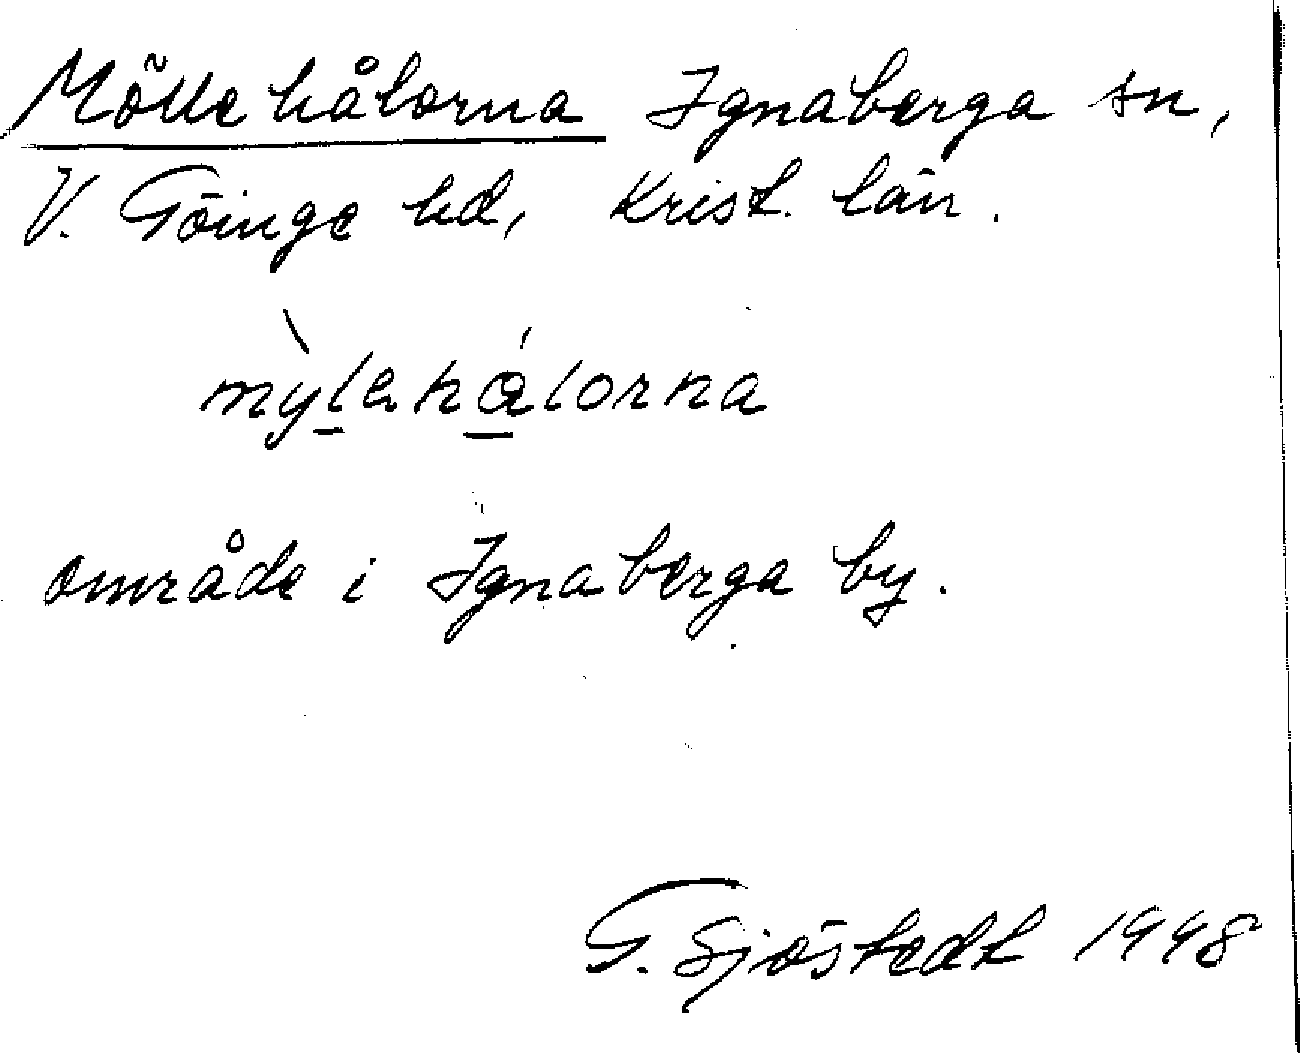 Möllehålorna Ignaberga sn,
V. Göinge hd, Krist. län.
mỳlehålorna
område i Ignaberga by.
G. Sjöstedt 1948